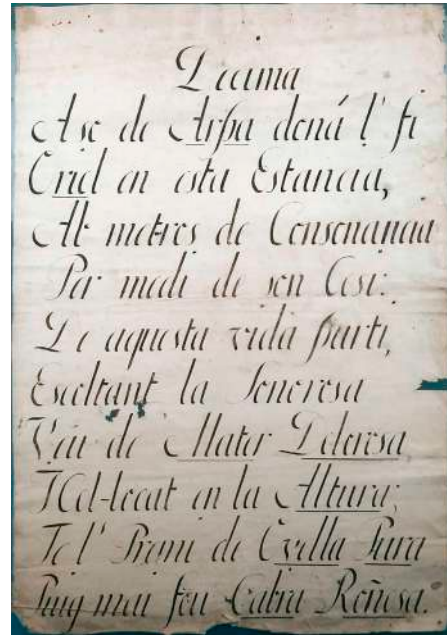 Decima
A so de Arpa doná l' fi
Oriol en esta Estancia,
Ab metros de Consonancia
Per medi de son Cosi:
De aquesta vida partí,
Escoltant la Sonorosa
Veu de Mater Dolorosa
Col-locat en la Altura;
Te l' Premi de Ovella Pura
Puig mai fou Cabra Roñosa.